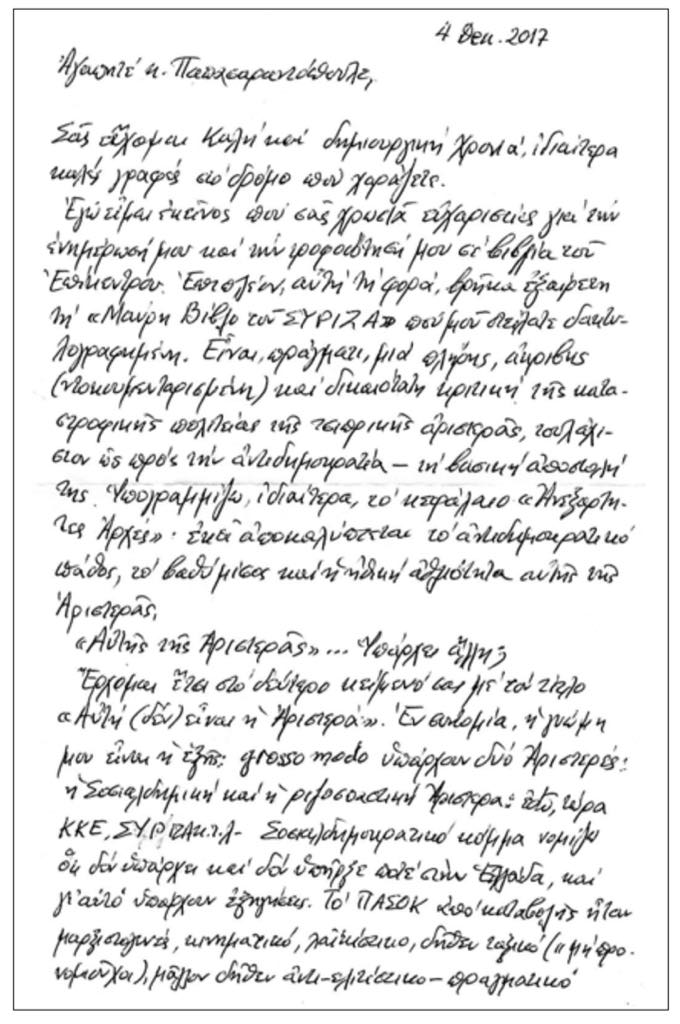 4 Δεκ. 2017
Ἀγαπητέ κ. Παπασαραντόπουλε,
Σᾶς εὔχομαι Καλή καί δημιουργική Χρονιά, ἰδιαίτερα
καλές γραφές στό δρόμο πού χαράζετε.
Ἐγώ εἶμαι ἐκεῖνος πού σᾶς χρωστᾶ εὐχαριστίες γιά τήν
ἐνημέρωσή μου καί τήν τροφοδότησή μου σέ βιβλία τοῦ
Ἐπίκεντρου. Ἐπιπλέον, αὐτή τή φορά, βρῆκα ἐξαίρετη
τή «Μαύρη Βίβλο τοῦ ΣΥΡΙΖΑ» πού μοῦ στείλατε δακτυ-
λογραφημένη. Εἶναι, πράγματι, μιά πλήρης, ἀκριβής
(ντοκουμενταρισμένη) καί δικαιότατη κριτική τῆς κατα-
στροφικῆς πολιτείας τῆς τσιπρικῆς ἀριστερᾶς, τουλάχι-
στον ὡς πρός τήν ἀντιδημοκρατία – τή βασική ἀποστολή
της. Ὑπογραμμίζω, ἰδιαίτερα, τό κεφάλαιο «Ἀνεξάρτη-
τες Ἀρχές»· ἐκεῖ ἀποκαλύπτεται τό ἀντιδημοκρατικό
πάθος, τό βαθύ μίσος καί ἡ ἠθική ἀθλιότητα αὐτῆς τῆς
Ἀριστερᾶς.
«Αὐτῆς τῆς Ἀριστερᾶς»... Ὑπάρχει ἄλλη;
Ἔρχομαι ἔτσι στό δεύτερο κείμενό σας μέ τόν τίτλο
«Αὐτή (δέν) εἶναι ἡ Ἀριστερά». Ἐν συντομία, ἡ γνώμη
μου εἶναι ἡ ἑξῆς: grosso modo ὑπάρχουν δυό Ἀριστερές:
ἡ Σοσιαλδημική καί ἡ ριζοσπαστική Ἀριστερά: ἐδῶ, τώρα
ΚΚΕ, ΣΥΡΙΖΑ κ.τ.λ- Σοσιαλδημοκρατικό κόμμα νομίζω
ὅτι δέν ὑπάρχει καί δέν ὑπῆρξε ποτέ στήν Ἑλλάδα, καί
γι' αὐτό ὑπάρχουν ἐξηγήσεις. Τό ΠΑΣΟΚ ἀπό καταβολῆς ἦταν
μαρξιστογενές, κινηματικό, λαϊκίστικο, δῆθεν ταξικό («μή προ-
νομιοῦχοι»), μᾶλλον δῆθεν ἀντι-ελιτίστικο – πραγματικό